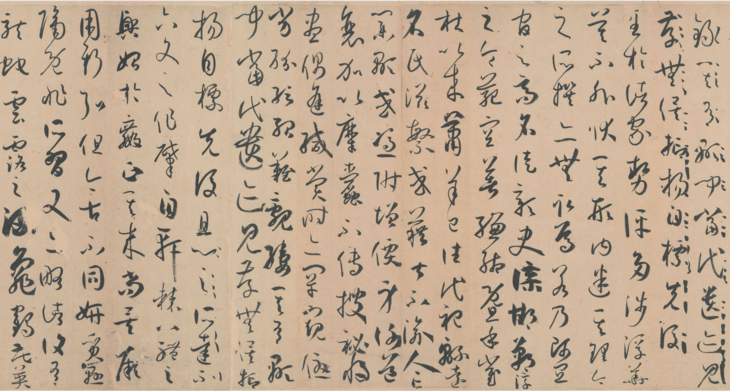 其有顯聞當代遺跡見
存無俟抑揚自標先後
至於諸家勢評多涉浮華
莫不外狀其形內迷其理今
之所撰亦無取焉若乃師宜
官之高名徒彰史牒邯鄲淳
之令範空著縑緗暨乎崔
杜以來蕭羊已往代祀緜遠
名氏滋繁或藉甚不渝人亡
業顯或憑附增價身謝道
衰加以糜蠹不傳搜祕將
盡偶逢緘賞時亦罕窺優
劣紛紜殆難覼縷其有顯
聞當代遺跡見存無俟抑
揚自標先後且
六文之作肇自軒轅八體之
興始於嬴正其來尚矣厥
用斯弘但今古不同妍質懸
隔既非所習又亦略諸復有
龍蛇雲露之流龜鶴花英